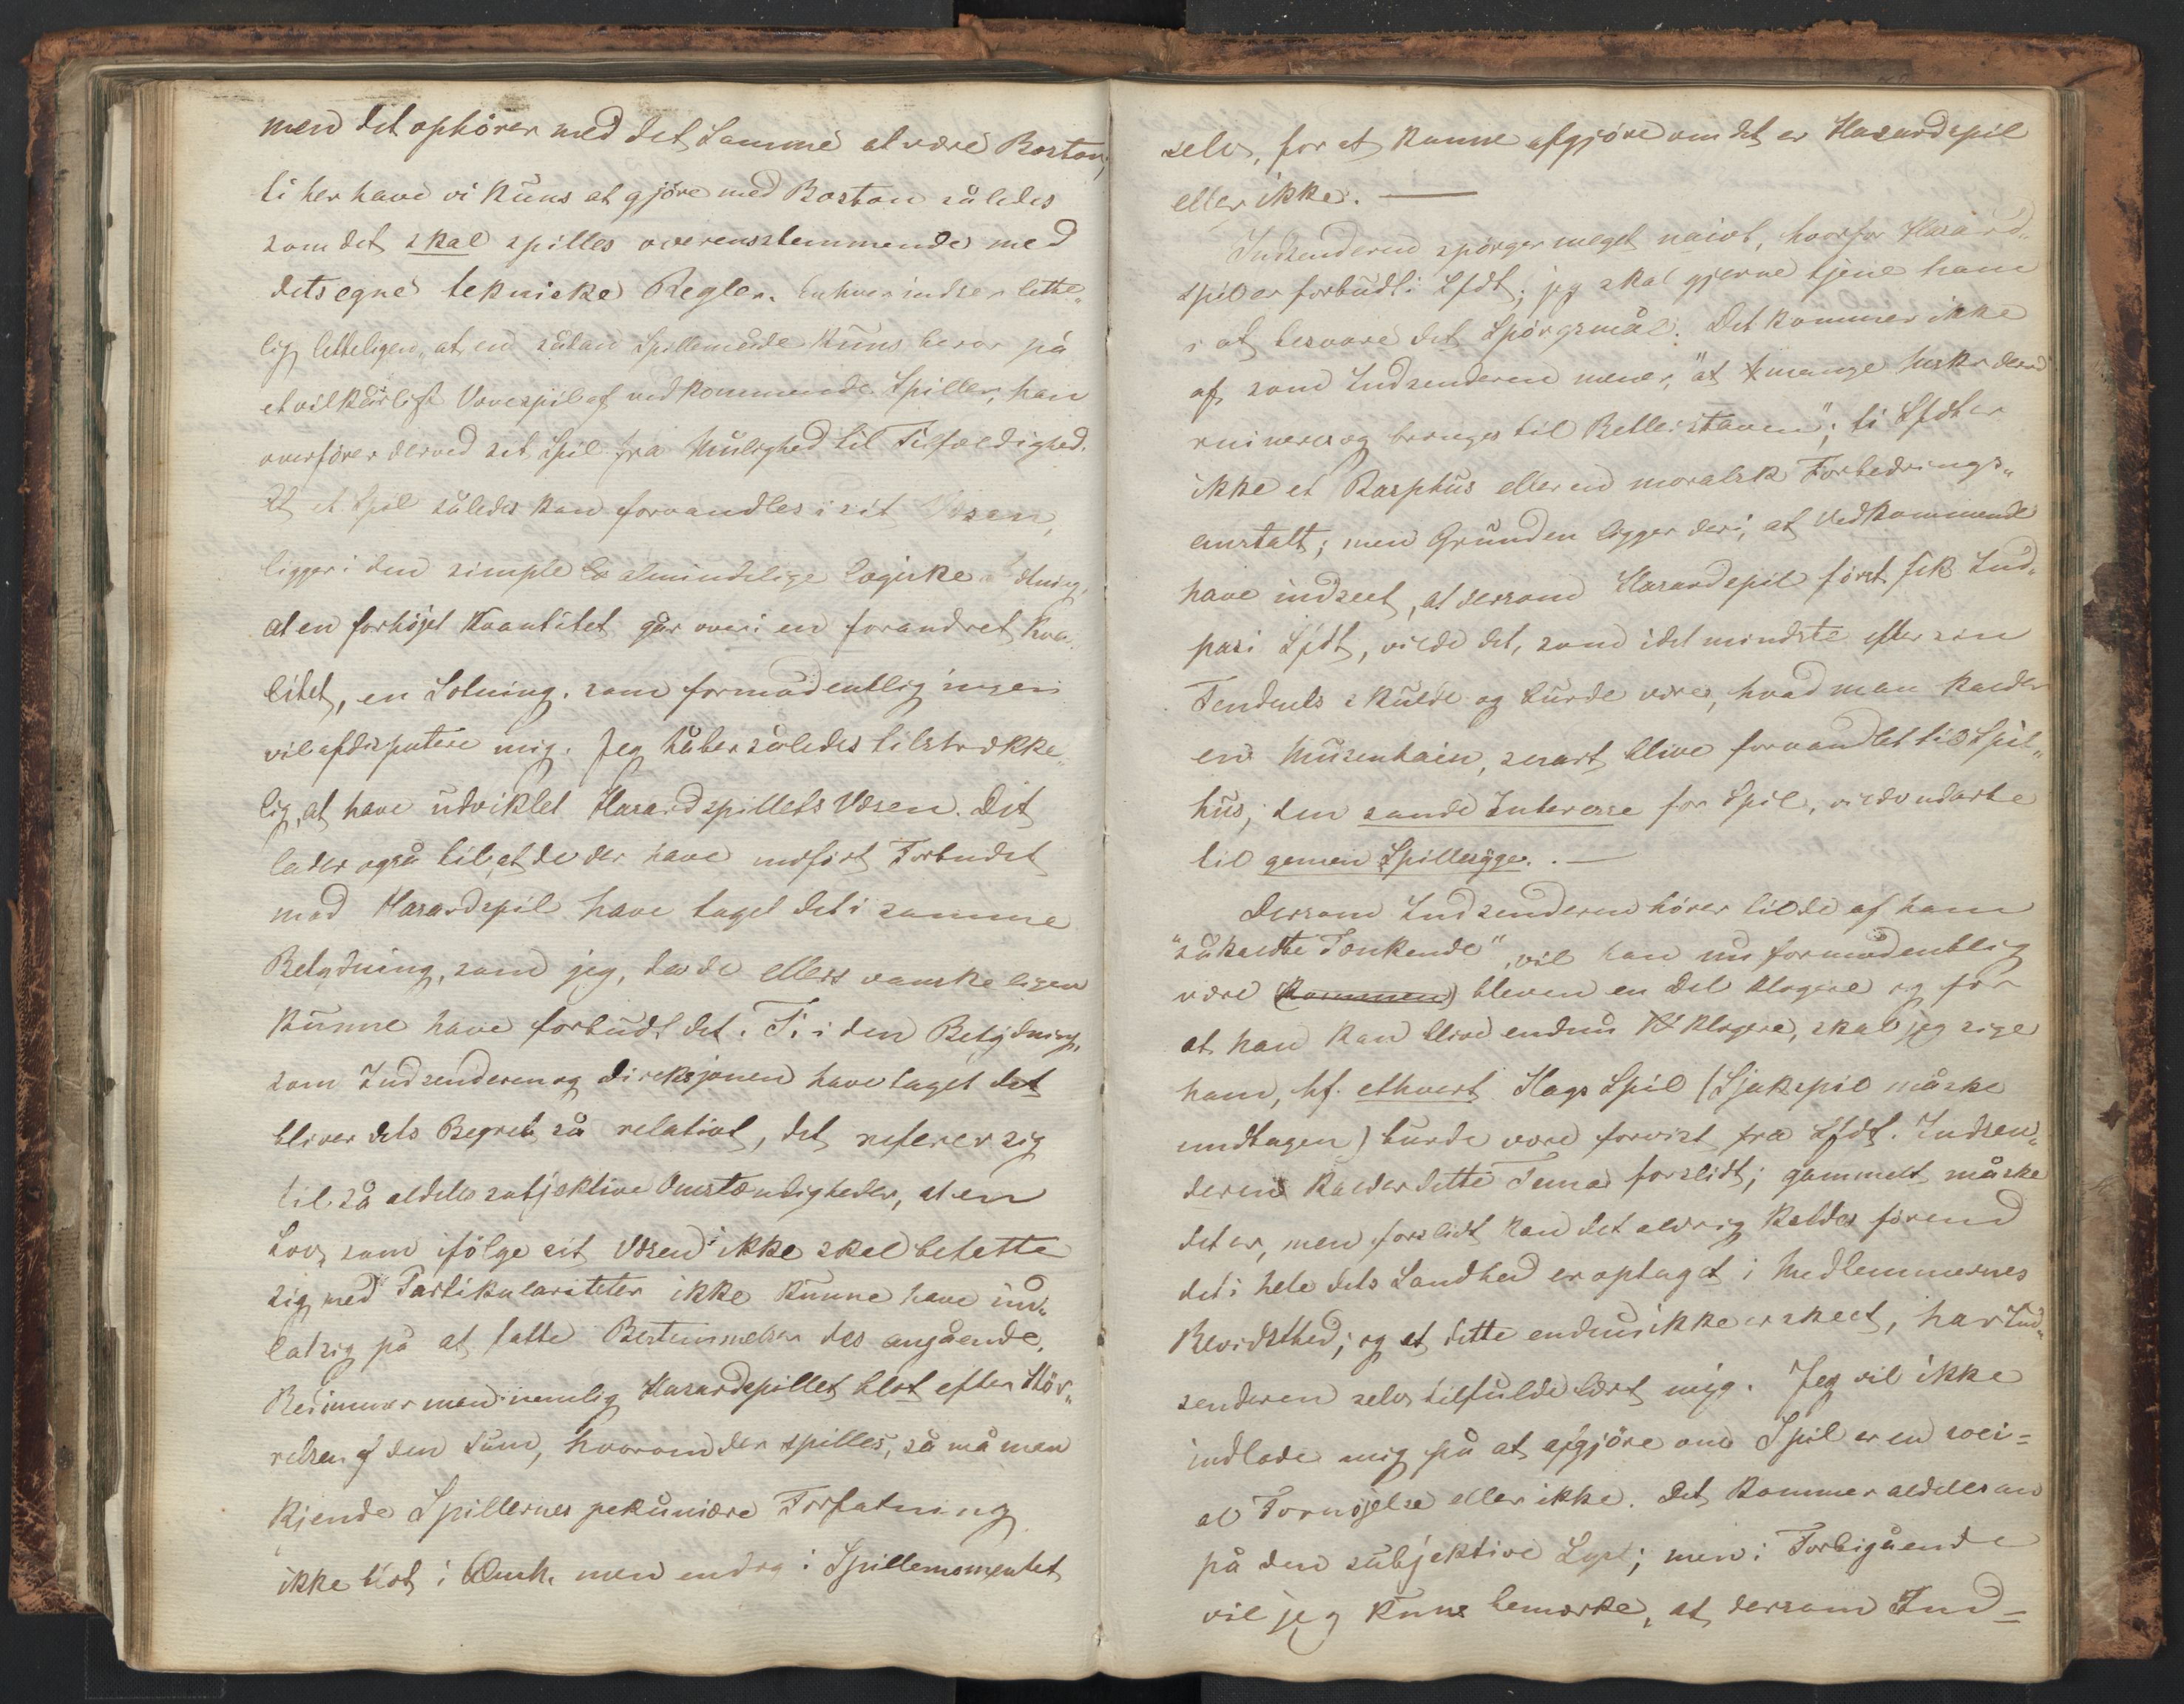 men det ophörer med det Samme at være Boston,
ti her have vi kuns at gjöre med Boston således
som det skal spilles overensstemmende med
dets egne tekniske Regler. Enhver indser lette„
lig letteligen, at en sådan Spillemåde kuns beror på
et vilkårligt Vovespil af vedkommende Spiller, han
overförer derved sit Spil fra Mulighed til Tilfældighed.
At et Spil således kan forvandles i sit Væsen,
ligger i den simple almindelige logiske Sætning,
at en forhöjet Kvantitet går over i en forandret Kva„
litet, en Sætning, som formodentlig ingen
vil afdisputere mig. Jeg håber således tilstrække„
lig, at have udviklet Hasardspillets Væsen. Det
lader også til, at de der have indfört Forbudet
mod Hasardspil have taget det i samme
Betydning, som jeg, da de ellers vanskeligen
kunne have forbudt det. Ti i den Betydning,
som Indsenderen og Direksjonen have taget det
bliver dets Begreb så relativt, det referer sig
til så aldeles subjektive Omstændigheder, at en
Lov, som ifölge sit Væsen ikke skal befatte
sig med Partikulariteter ikke kunne have ind„
ladt sig på at fatte Bestemmelser des angående.
Bestemmer man nemlig Hasardspillet blot efter Stör„
relsen af den Sum, hvorom der spilles, så må man
kjende Spillernes pekuniære Forfatning
ikke blot i Alm. men endog i Spillemomentet
selv, for at kunne afgjöre om det er Hasardspil
eller ikke. —
Indsenderen spörger meget naivt, hvorfor Hasard„
spil er forbudt i Sfdt; jeg skal gjerne tjene ham
i at besvare det Spörgsmål. Det kommer ikke
af, som Indsenderen mener, "at mange Msker derved
ruineres og bringes til Bettelstaven"; ti Sfdt er
ikke et Rasphus eller en moralsk Forbedrings„
anstalt; men Grunden ligger deri, at Vedkommende
have indseet, at dersom Hasardspil först fik Ind„
pas i Sfdt, vilde det, som idet mindste efter sin
Tendents skulde og burde være, hvad man kalder
en Musenhain, snart blive forvandlet til Spil„
hus, den sande Interesse for Spil, vilde udarte
til gemen Spillesyge. —
Dersom Indsenderen hörer til de af ham
"såkaldte Tænkende", vil han nu formodentlig
være (kommen) bleven en Del klogere og for
at han kan blive endnu klogere, skal jeg sige
ham, at ethvert Slags Spil (Sjakspil måske
undtagen) burde være forvist fra Sfdt. Indsen„
deren kalder dette Tema forslidt; gammelt måske
det er, men forslidt kan det aldrig kaldes förend
det i hele dets Sandhed er optaget i Medlemmernes
Bevidsthed; og at dette endnu ikke er skeet, har Ind„
senderen selv tilfulde lært mig. Jeg vil ikke
indlade mig på at afgjöre om Spil er en soci=
al Fornöjelse eller ikke. Det kommer aldeles an
på den subjektive Lyst; men i Forbigående
vil jeg kuns bemærke, at dersom Ind=